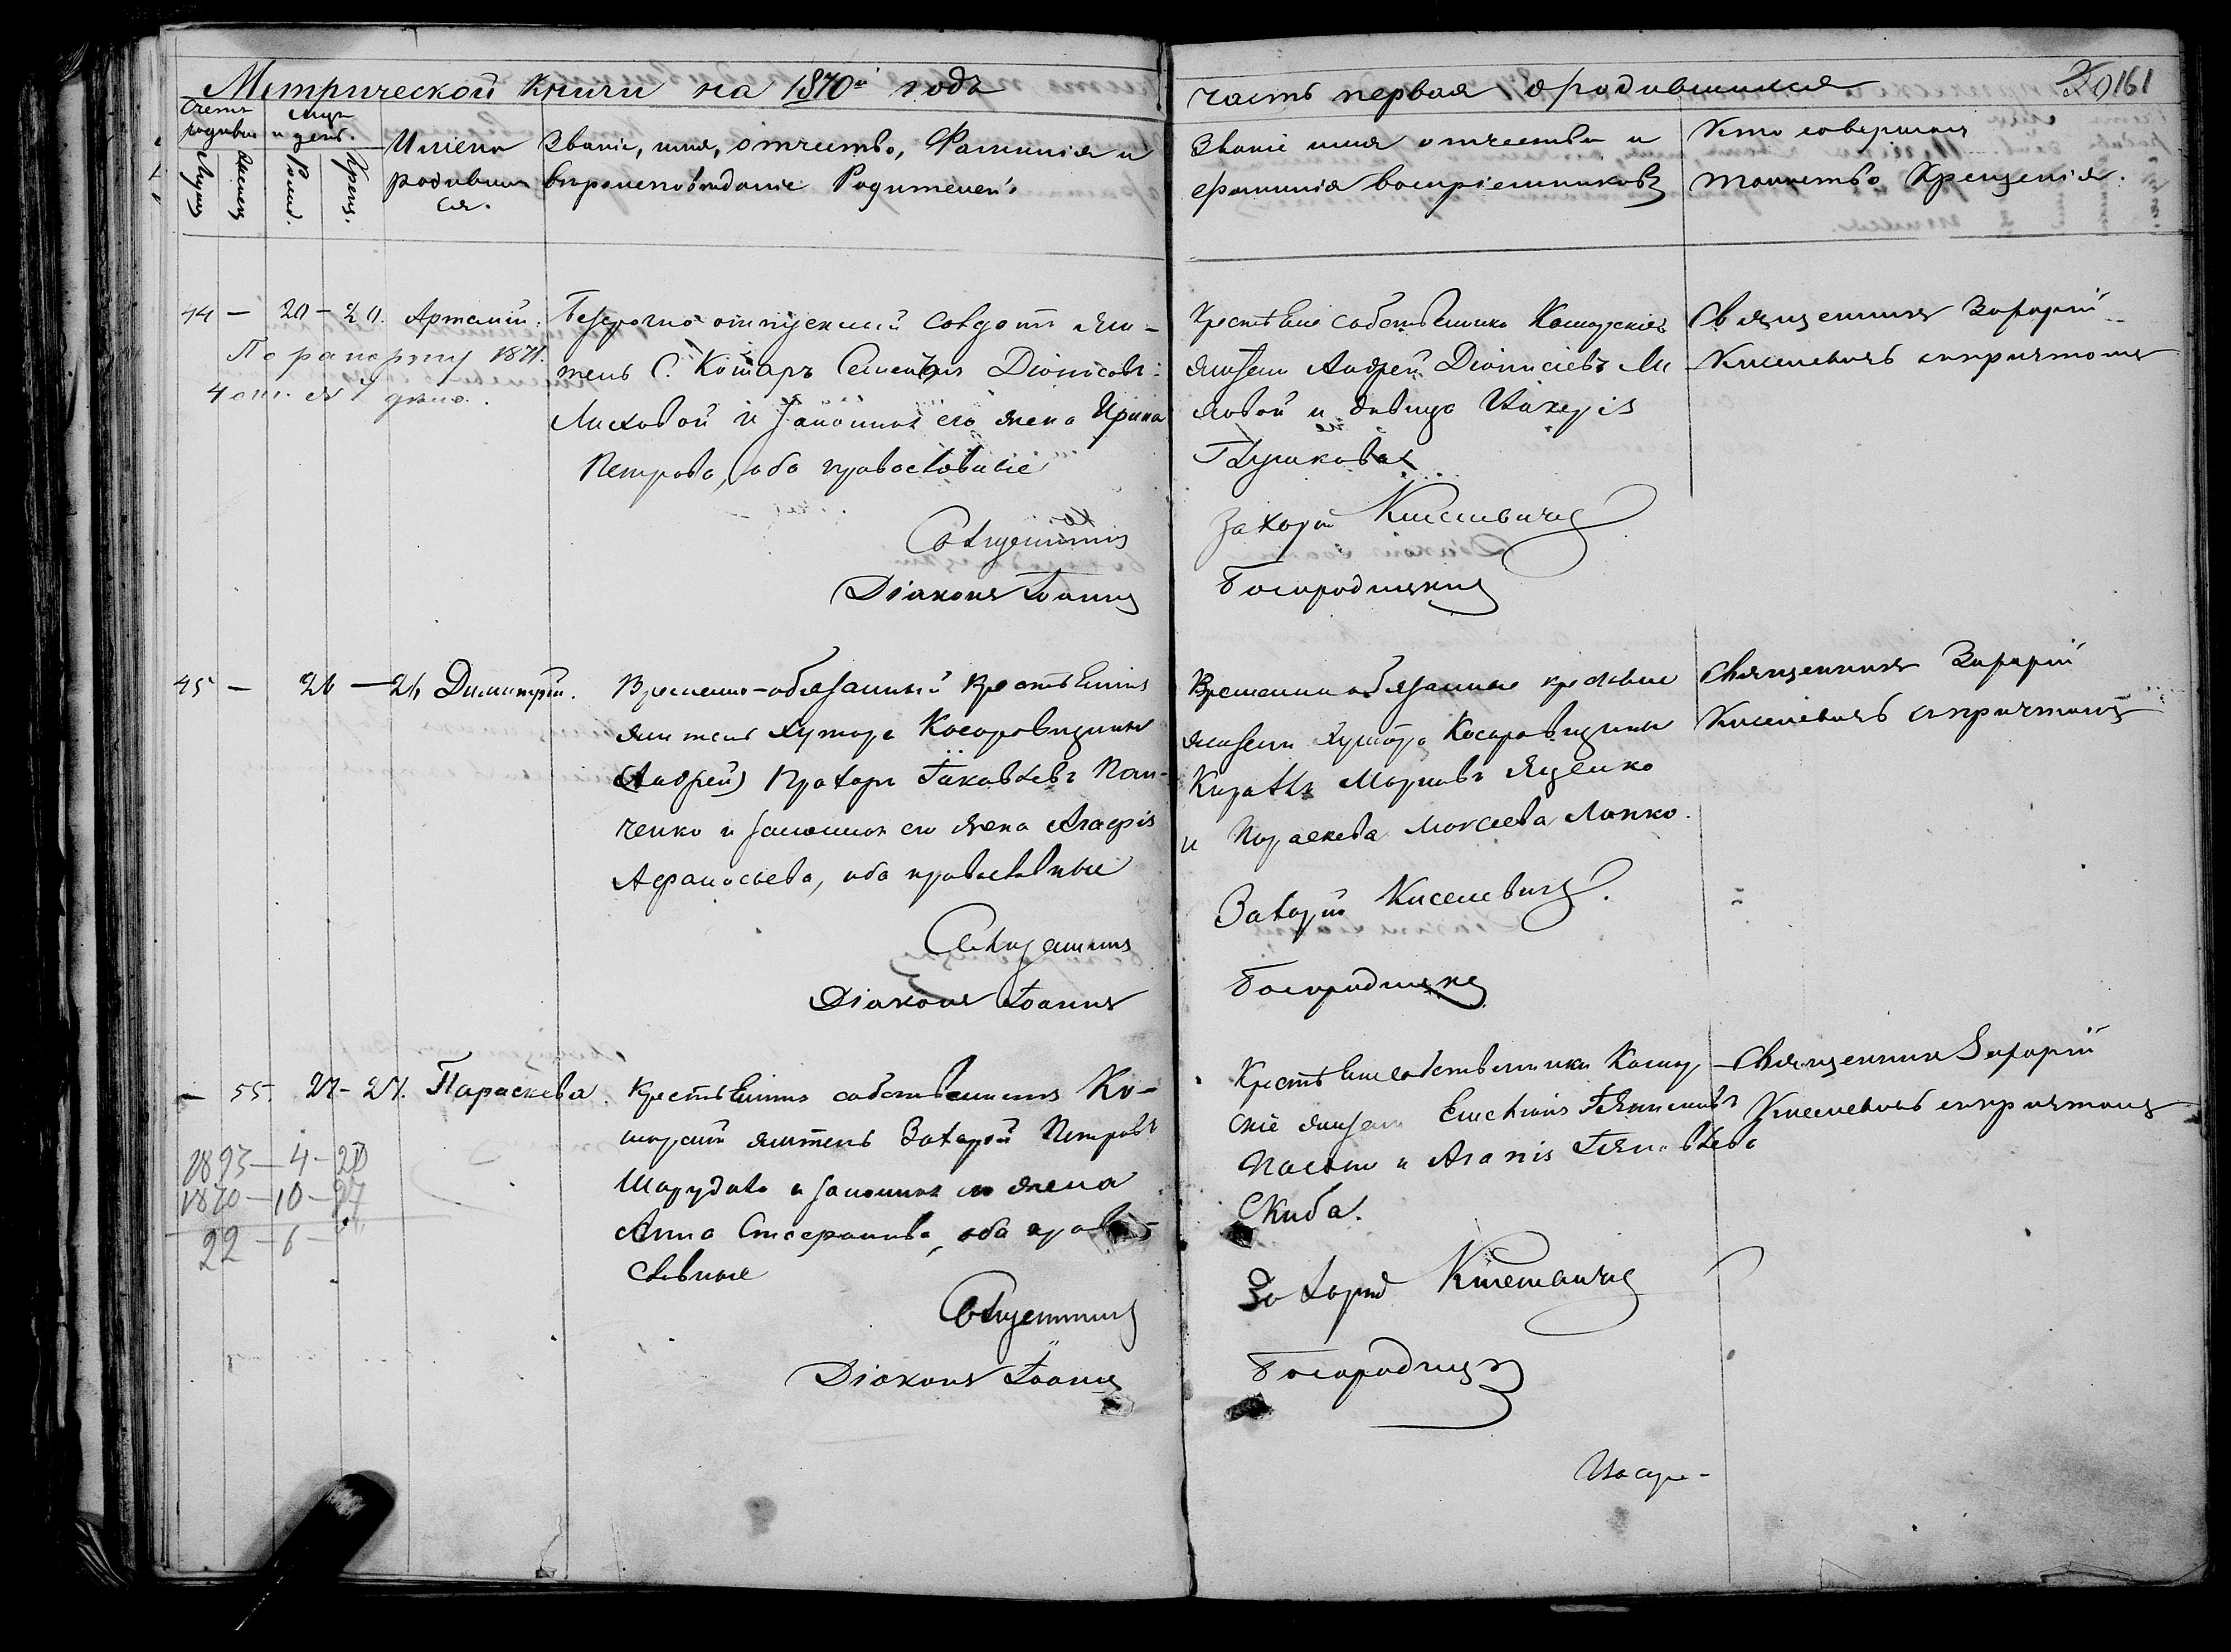 Метрической Книги на 1870й годъ
часть первая о родившихся
161
Счетъ родивш.
Мужск
Женск
Мцъ и день.
Рожд.
Крещ.
Имена родивших ся.
Званіе, имя, отчество, Фамилія и
вѣроисповѣданіе Родителей.
Званіе имя отчество и
фамилія воспріемниковъ
Кто совершалъ
таинство Крещенія.
44 — 20 — 20. Артемій.
По рапорту 1871.
4 дѣло.
Безсрочно отпускный Солдатъ жи-
тель С. Кошаръ Діонисовъ
Лисховой и законная его жена Ирина
Петрова, оба православные
Крестьяне собственники Кошарскіе
жители Андрей Діонисіевъ Ли
ховой и дѣвица
Глушкова
Священникъ Захарій
Киселевичъ съ причтомъ
Священникъ Захарій Киселевичъ
Діаконъ Іоаннъ Богородицкій
45 — 26 — 26 Димитрій.
Временно-обязанный крестьянинъ
житель хутора Косаровщины
(Андрей) Прохоръ Іаковлевъ Пан-
ченко и законная его жена Агафія
Афанасьева, оба православные
Временно обязанные крестьяне
жители хутора Косаровщины
Кириллъ Марковъ Яценко
и Параскева Моисеева Лопко.
Священникъ Захарій
Киселевичъ съ причтомъ
Священникъ Захарій Киселевичъ.
Діаконъ Іоаннъ Богородицкій
— 55. 27 — 27. Параскева.
1893 — 4 — 20
1870 — 10 — 27
22 — 6 —
Крестьянинъ собственникъ Ко-
шарскій житель Захарій Петровъ
Шарудило и законная его жена
Анна Стефанова, оба право-
славные
Крестьяне собственники Кошар-
скіе жители
и
Скиба.
Священникъ Захарій
Киселевичъ съ причтомъ
Священникъ Захарій Киселевичъ
Діаконъ Іоаннъ Богородицкій